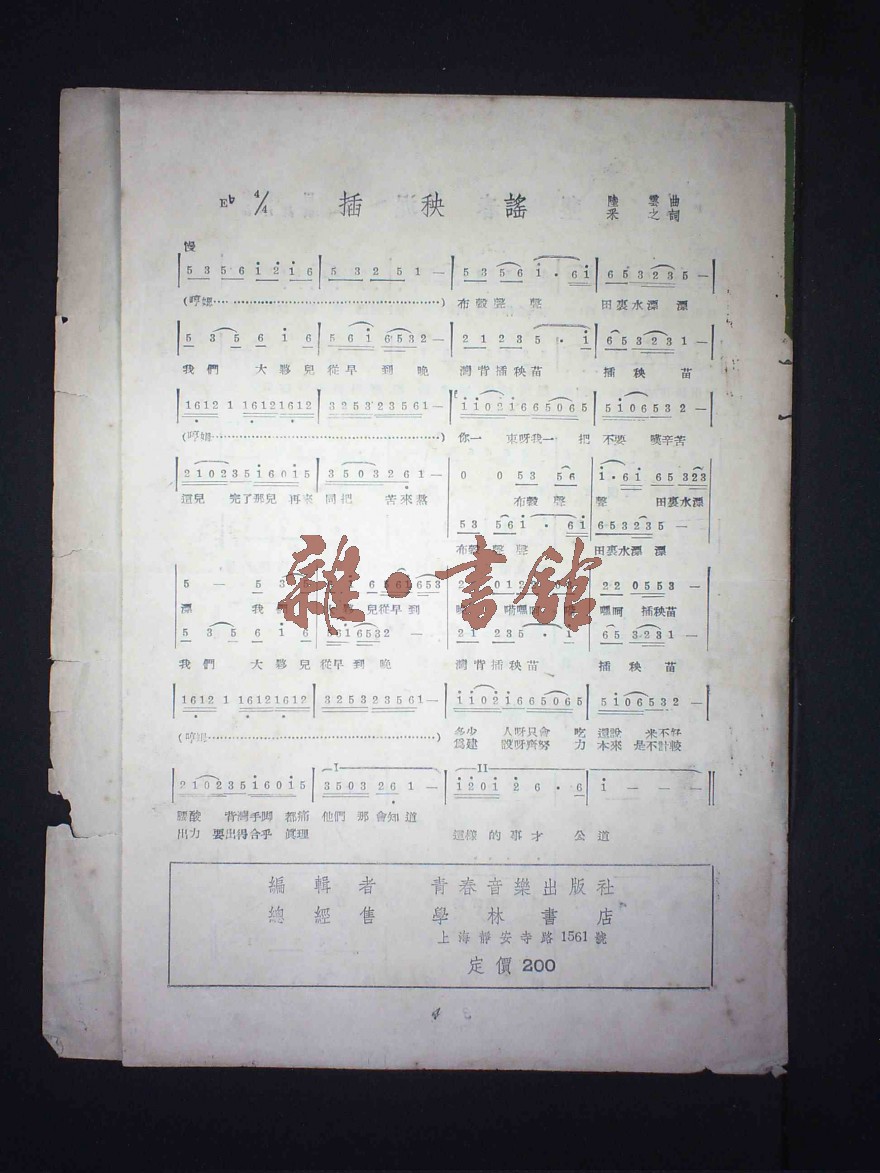 E♭ 4/4 插秧謠 陸雲曲
采之詞
慢
5 3 5 6 i 2 i 6 5 3 2 5 1 — 5 3 5 6 i · 6 i 6 5 3 2 3 5 —
(哼嗯……………………………………) 布穀聲聲 田裏水漂漂
5 3 5 6 i 6 5 6 i 6 5 3 2 — 2 1 2 3 5 · i 6 5 3 2 3 1 —
我們 大夥兒從早到晚 灣背插秧苗 插秧苗
1612 1 1612 1612 3253 23561 — 5 i 0 6 5 3 2 —
(哼嗯……………………………………) 你一 束呀我一 把 不要 嘆辛苦
2 1 0 2 3 5 i 6 0 i 5 3 5 0 3 2 6 1 — 0 0 53 56 i · 6 i 65 323
這兒 完了那兒 再來 同把 苦來熬 布穀聲 聲 田裏水漂
53 56 i i · 6 i 6 5 3 2 3 5 —
布穀聲聲 田裏水漂漂
漂 我 兒從早到 插秧苗
5 3 5 6 i 6 5 6 i 6 5 3 2 — 2 1 2 3 5 · i 6 5 3 2 3 1 —
我們 大夥兒從早到晚 灣背插秧苗 插秧苗
1612 1 1612 1612 3253 23561 — 5 i 0 6 5 3 2 —
(哼嗯……………………………………) 多少 人呀只會 吃 還說 米不好
爲建 設呀齊努 力 本來 是不計較
I II
2 1 0 2 3 5 i 6 0 i 5 3 5 0 3 2 6 1 — i 2 0 i 2 6 · 6 i — — —
腰酸 背灣手脚 都痛 他們 那 會知道
出力 要出得合乎 眞理 這樣的事才 公道
雜·書館
編輯者 青春音樂出版社
總經售 學林書店
上海靜安寺路1561號
定價 200